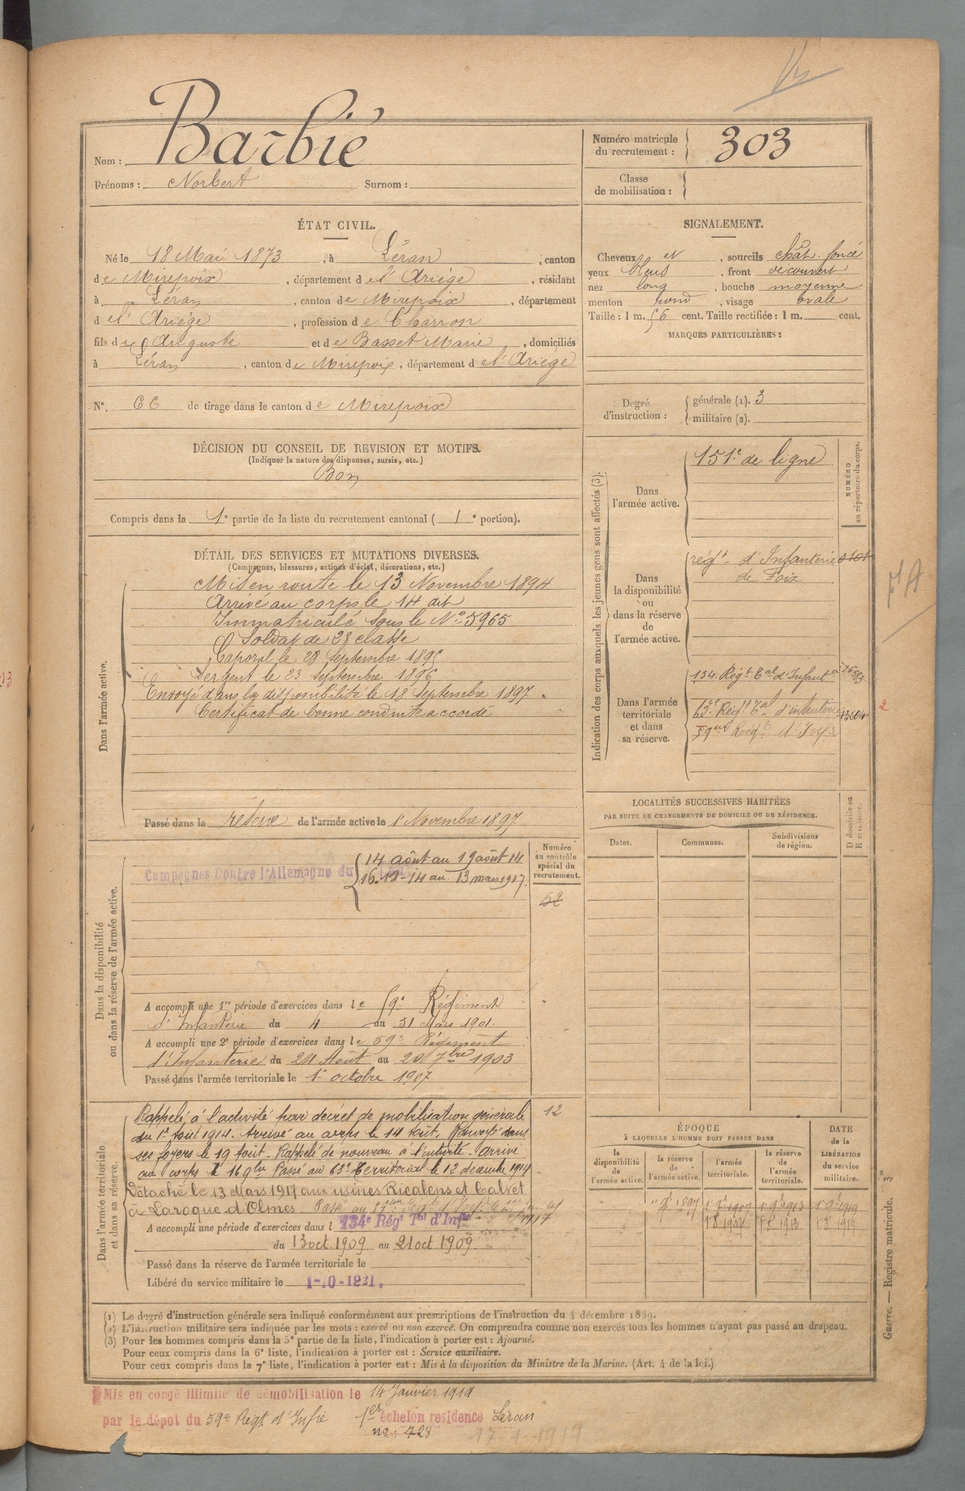 Barbié
Nom :
Prénoms : Norbert Surnom :
Numéro matricule du recrutement : 303
Classe de mobilisation :
ÉTAT CIVIL.
Né le 18 Mai 1873, à Léran, canton
de Mirepoix, département de l'Ariège, résidant
à Léran, canton de Mirepoix, département
d e l'Ariège, profession de Charron
fils de Auguste et de Basset Marie, domiciliés
à Léran, canton de Mirepoix, département de l'Ariège
N°. 66 de tirage dans le canton de Mirepoix
DÉCISION DU CONSEIL DE REVISION ET MOTIFS.
(Indiquer la nature des dispenses, sursis, etc.)
Bon
Compris dans la 1e partie de la liste du recrutement cantonal ( 1e portion).
DÉTAIL DES SERVICES ET MUTATIONS DIVERSES.
(Campagnes, blessures, actions d'éclat, décorations, etc.)
Dans l'armée active.
Mis en route le 13 Novembre 1894
Arrivé au corps le 14 dit
Immatriculé sous le N° 5965
Soldat de 2e classe
Caporal le 28 Septembre 1895
Sergent le 23 Septembre 1896
Envoyé dans la disponibilité le 18 Septembre 1897.
Certificat de bonne conduite accordé
Passé dans la réserve de l'armée active le 1 Novembre 1897
Dans la disponibilité ou dans la réserve de l'armée active.
Campagnes Contre l'Allemagne du
14 août au 19 août 14
16-12-14 au 13 mars 1917
Numéro au contrôle spécial du recrutement.
62
A accompli une 1re période d'exercices dans le 59e Régiment
d'Infanterie du 4 au 31 Mars 1901.
A accompli une 2e période d'exercices dans le 59e Régiment
d'Infanterie du 24 Août au 20 7bre 1903
Passé dans l'armée territoriale le 1er octobre 1907
Dans l'armée territoriale et dans sa réserve.
Rappelé à l'activité par décret de mobilisation générale
du 1er Août 1914. Arrivé au corps le 14 Août. Renvoyé dans
ses foyers le 19 Août. Rappelé de nouveau à l'activité. Arrivé
au corps le 16 Passé au 63e Territorial le 12
Détaché le 13 Mars 1917 aux usines Ricalens et Calvet
à Laroque d'Olmes Passé au 1917
12
A accompli une période d'exercices dans l 134e Régt Tal d'Infie
du 13 oct. 1909 au 21 oct 1909
Passé dans la réserve de l'armée territoriale le
Libéré du service militaire le 1-10-1921.
SIGNALEMENT.
Cheveux et, sourcils chât. foncé
yeux bleus, front découvert
nez long, bouche moyenne
menton rond, visage ovale
Taille : 1 m. 56 cent. Taille rectifiée : 1 m. cent.
MARQUES PARTICULIÈRES :
Degré d'instruction : générale (1). 3
militaire (2).
Indication des corps auxquels les jeunes gens sont affectés (3).
NUMÉRO au répertoire du corps.
Dans l'armée active.
151e de ligne
Dans la disponibilité ou dans la réserve de l'armée active.
régt d'Infanterie
de Foix
Dans l'armée territoriale et dans sa réserve.
134 Régt Tal d'Infantie
63e Régt Tal d'infanterie
59eme Régt d'Infie
LOCALITÉS SUCCESSIVES HABITÉES
PAR SUITE DE CHANGEMENTS DE DOMICILE OU DE RÉSIDENCE.
Dates. Communes. Subdivisions de région.
D domicile ou R résidence.
ÉPOQUE
À LAQUELLE L'HOMME DOIT PASSER DANS
DATE de la LIBÉRATION du service militaire.
la disponibilité de l'armée active.
la réserve de l'armée active.
l'armée territoriale.
la réserve de l'armée territoriale.
1 9bre 1897 1 9bre 1907 1 9bre 1913 1 9bre 1919
Guerre. — Registre matricule.
(1) Le degré d'instruction générale sera indiqué conformément aux prescriptions de l'instruction du 4 décembre 1889.
(2) L'instruction militaire sera indiquée par les mots : exercé ou non exercé. On comprendra comme non exercés tous les hommes n'ayant pas passé au drapeau.
(3) Pour les hommes compris dans la 5e partie de la liste, l'indication à porter est : Ajourné.
Pour ceux compris dans la 6e liste, l'indication à porter est : Service auxiliaire.
Pour ceux compris dans la 7e liste, l'indication à porter est : Mis à la disposition du Ministre de la Marine. (Art. 4 de la loi.)
Mis en congé illimité de démobilisation le 14 Janvier 1919
par le dépôt du 59e Régt d'Infie 1er échelon résidence Léran
428
17-1-1919